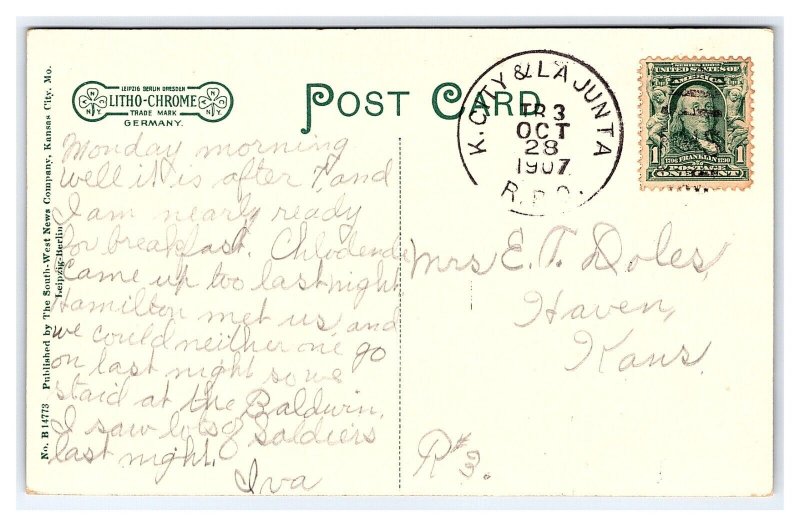 LEIPZIG BERLIN DRESDEN
LITHO-CHROME
TRADE MARK
GERMANY.
POST CARD
K. CITY & LA JUNTA
TR 3
OCT
28
1907
R.P.O.
SERIES 1902
UNITED STATES OF
AMERICA
1 FRANKLIN 1
POSTAGE
ONE CENT
No. B 14773 Published by The South-West News Company, Kansas City, Mo.
Leipzig-Berlin
Monday morning
well it is after 7 and
I am nearly ready
for breakfast.
Came up too last night
Hamilton met us and
we could neither one go
on last night so we
staid at the Baldwin.
I saw lots of soldiers
last night.
Iva
Mrs E. T. Doles,
Haven,
Kans.
R#3.